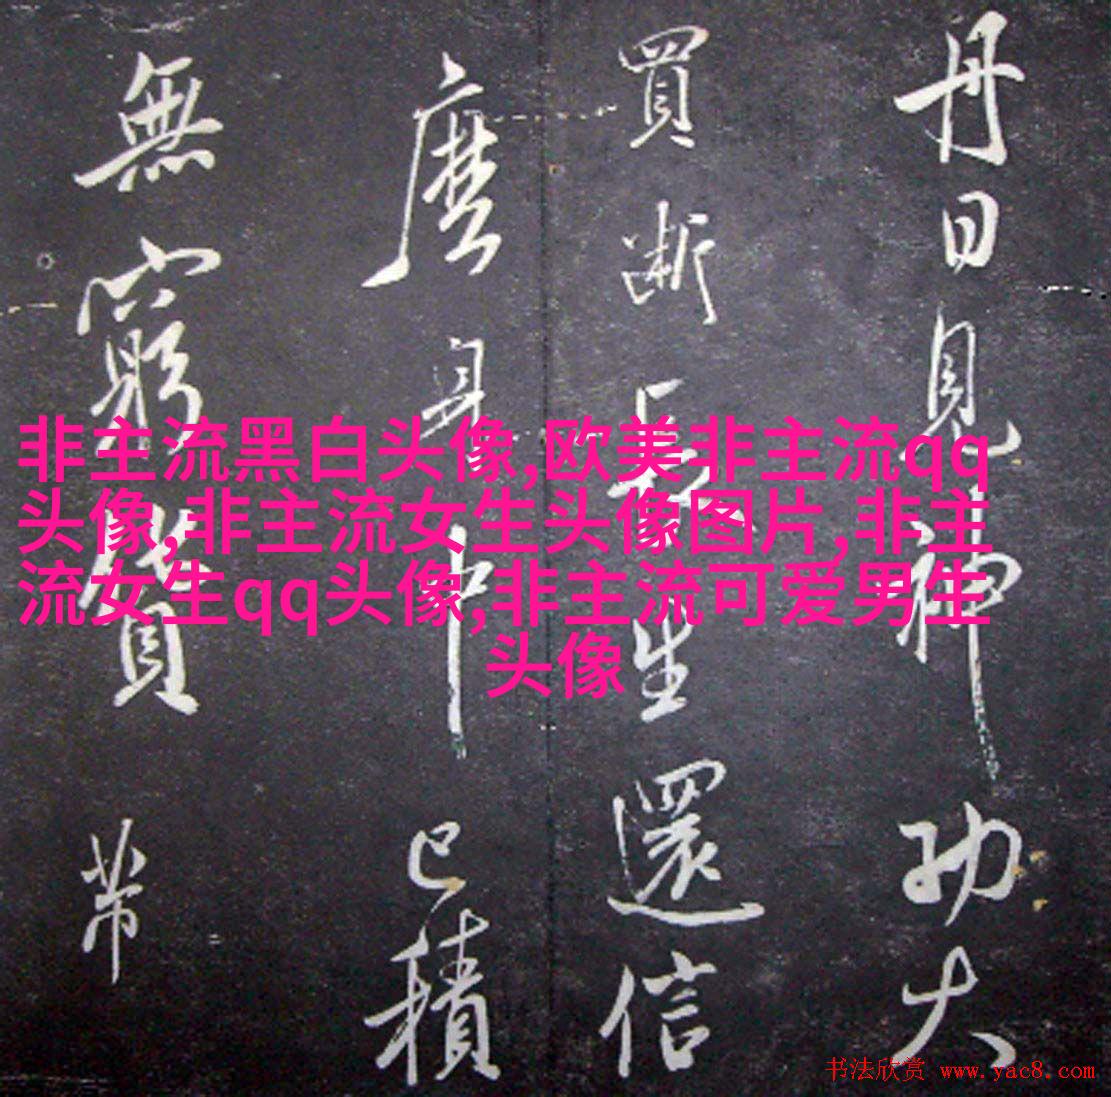 丹日見神功大
買斷長生還信
麼身中已積
無窮貨带
非主流黑白头像,欧美非主流qq
头像,非主流女生头像图片,非主
流女生qq头像,非主流可爱男生
头像
书法欣赏 www.yac8.com